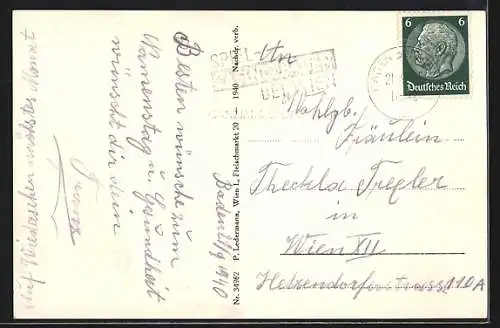 Besten wünsche zum
Namenstag u. Gesundheit
wünscht dir dein
Franz
auf Wiedersehen nächstes Monat
Baden 1/9 1940
Nr. 34262 P. Ledermann, Wien I., Fleischmarkt 20 — 1940 Nachdr. verb.
6 6
Deutsches Reich
Wohlgb.
Fräulein
Thekla Tregler
in
Wien XII
Hetzendorferstrasse 110A